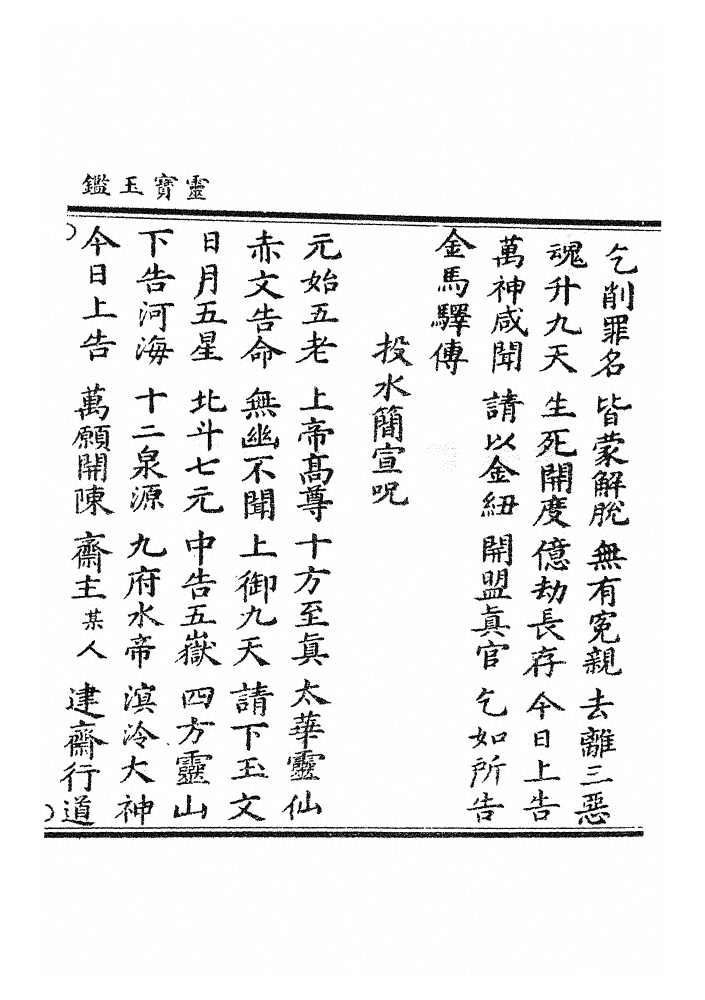 靈寶玉鑑
乞削罪名 皆蒙解脫 無有冤親 去離三惡
魂升九天 生死開度 億劫長存 今日上告
萬神咸聞 請以金紐 開盟眞官 乞如所告
金馬驛傳
投水簡宣呪
元始五老 上帝高尊 十方至眞 太華靈仙
赤文告命 無幽不聞 上御九天 請下玉文
日月五星 北斗七元 中告五嶽 四方靈山
下告河海 十二泉源 九府水帝 溟泠大神
今日上告 萬願開陳 齋主某人 建齋行道